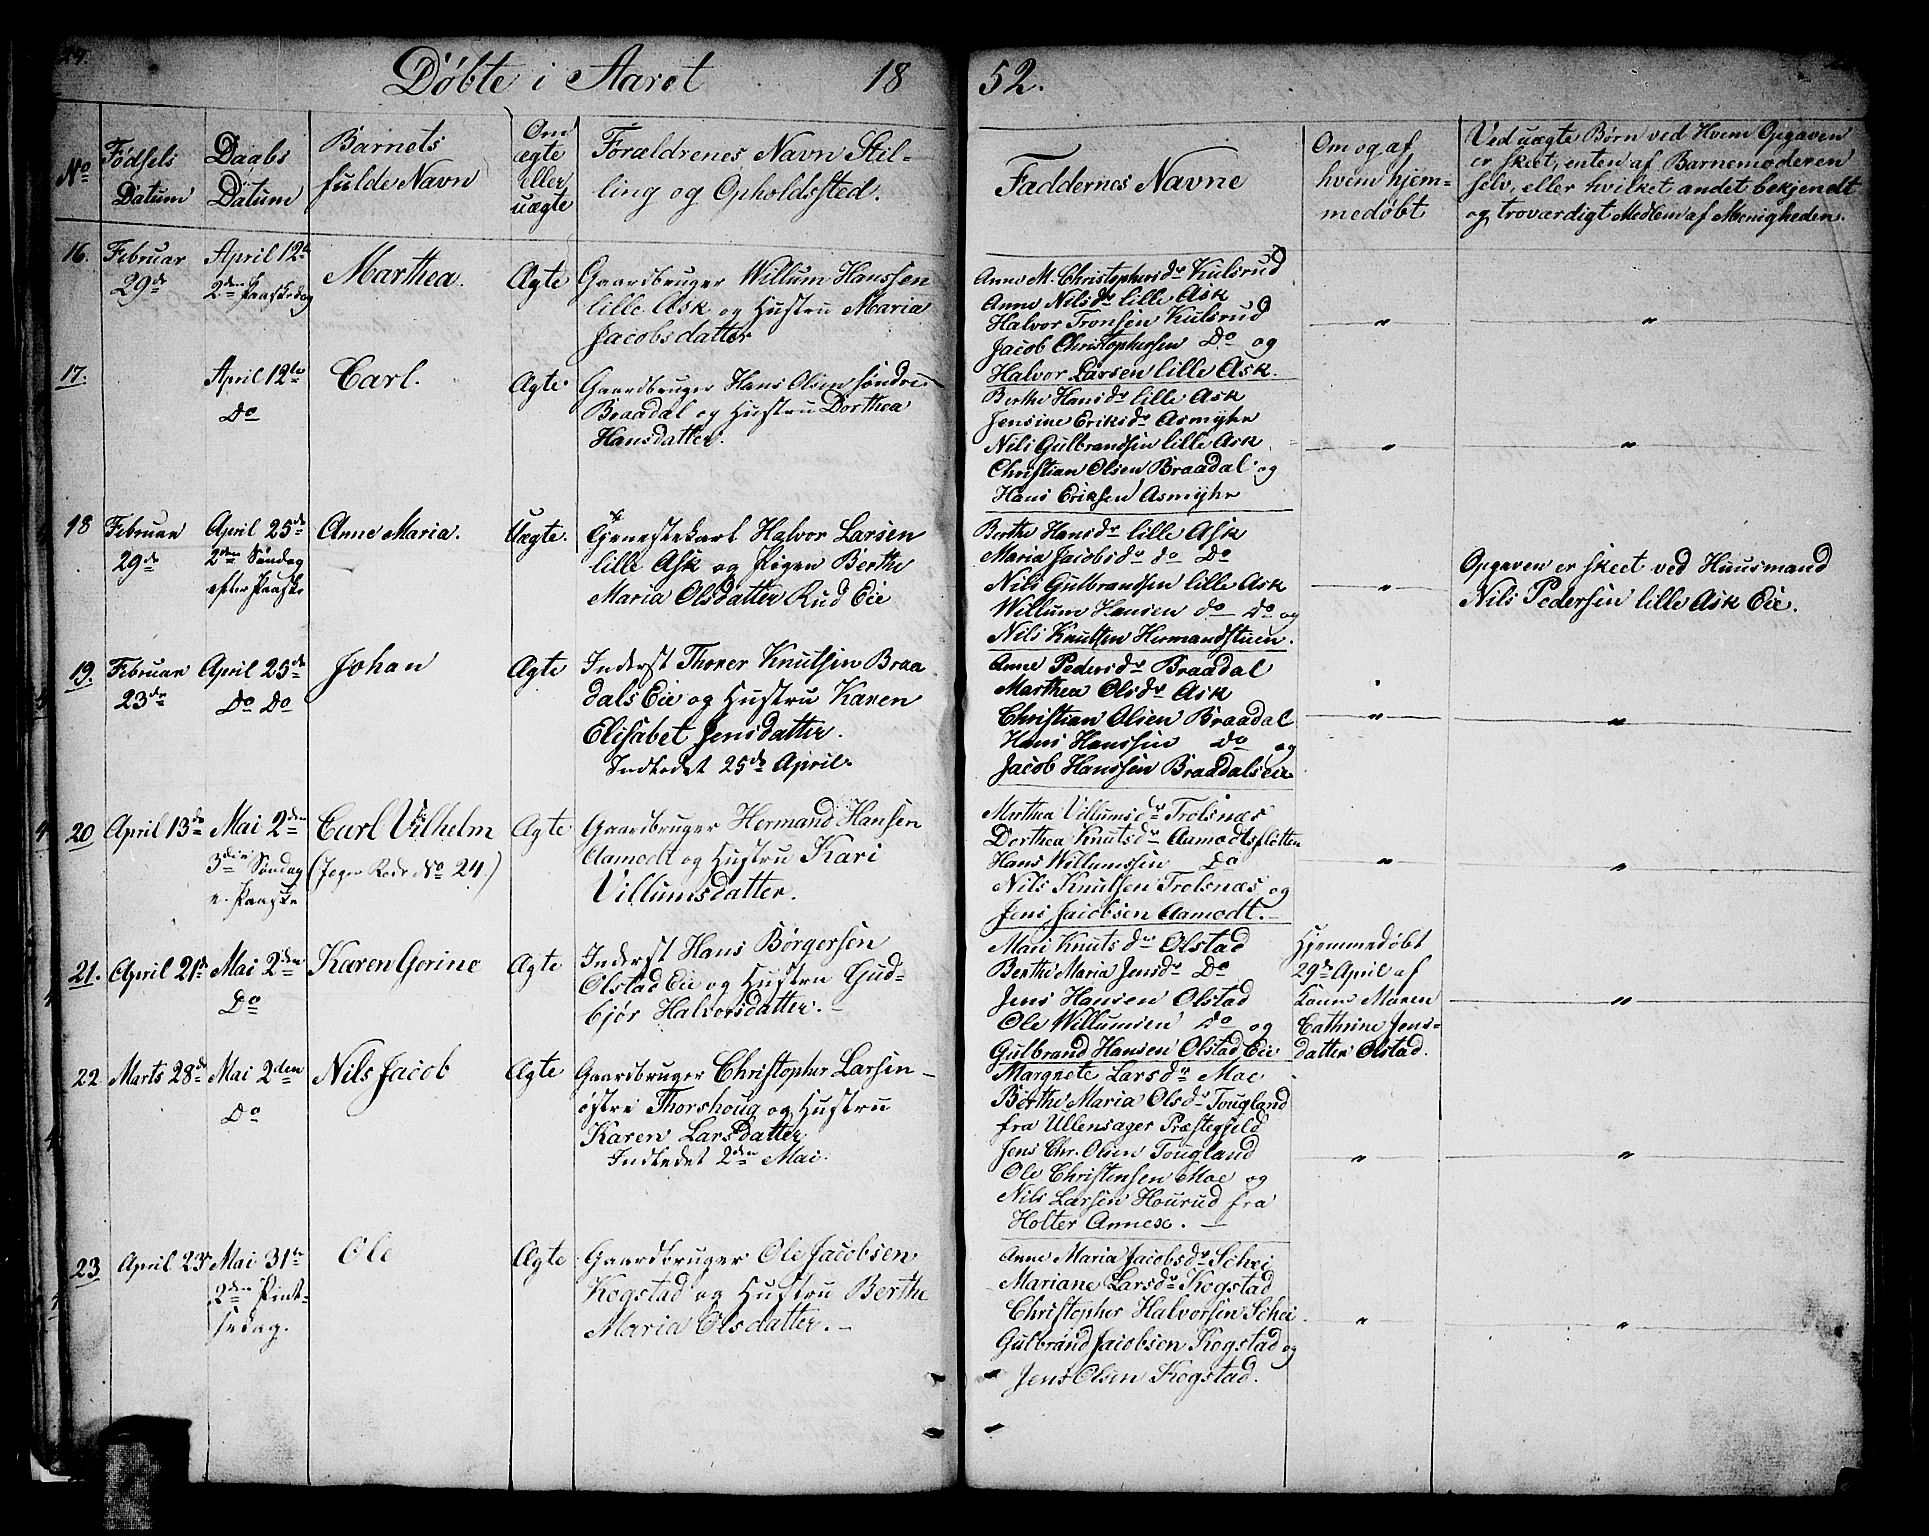 24.
Døbte i Aaret 1852.
No
Fødsels Datum
Daabs Datum
Barnets fulde Navn
Om ægte eller uægte
Forældrenes Navn Stil-
ling og Opholdssted.
Faddernes Navne
Om og af
hvem hjem-
medøbt
Ved uægte Børn ved Hvem Opgaven
er skeet, enten af Barnemoderen
selv, eller hvilket andet bekjendt
og troværdigt Medlem af Menigheden.
16.
Februar
29de
April 12te
2den Paaskedag
Marthea.
Ægte
Gaardbruger Willum Hanssen
lille Ask og Hustru Maria
Jacobsdatter
Anne M. Christophersdr Kulsrud
Anne Nilsdr lille Ask
Halvor Tronsen Kulsrud
Jacob Christophersen Do og
Halvor Larsen lille Ask.
"
"
17.
April 12te
Do
Carl.
Ægte.
Gaardbruger Hans Olsen søndre
Braadal og Hustru Dorthea
Hansdatter.
Berthe Hansdr lille Ask
Jensine Eriksdr Asmyhr
Nils Gulbrandsen lille Ask
Christian Olsen Braadal og
Hans Eriksen Asmyhr
"
"
18
Februar
29de
April 25de
2den Søndag
efter Paaske
Anne Maria.
Uægte.
Tjenestekarl Halvor Larsen
lille Ask og Pigen Berthe
Maria Olsdatter Rud Eie
Berthe Hansdr lille Ask
Maria Jacobsdr do Do
Nils Gulbrandsen lille Ask
Willum Hansen do Do og
Nils Knutsen Hermandstuen.
"
Opgaven er skeet ved Huusmand
Nils Pedersen lille Ask Eie.
19.
Februar
23de
April 25de
Do Do
Johan
Ægte
Inderst Thorer Knutsen Braa
dals Eie og Hustru Karen
Elisabet Jensdatter.
Indledet 25de April.
Anne Pedersdr Braadal
Marthea Olsdr Ask
Christian Olsen Braadal
Hans Hanssen Do og
Jacob Hanssen Braadalseie
"
"
20
April 13de
Mai 2den
3die Søndag
e. Paaske
Carl Vilhelm
(Jeger Rode No 24.)
Ægte
Gaardbruger Hermand Hansen
Aamodt og Hustru Kari
Villumsdatter.
Marthea Villumsdr Trolsnæs
Dorthea Knutsdr Aamodtsfløtten
Hans Willumssen Do
Nils Knutsen Trolsnæs og
Jens Jacobsen Aamodt.
"
"
21.
April 21de
Mai 2den
Do
Karen Gorine
Ægte
Inderst Hans Børgersen
Olstad Eie og Hustru Gud-
bjør Halvorsdatter.
Mari Knutsdr Olstad
Berthe Maria Jensdr Do
Jens Hansen Olstad
Ole Willumsen Do og
Gulbrand Hansen Olstad Eie
Hjemmedøbt
29de April af
Kone Maren
Cathrine Jens-
datter Olstad.
"
22
Marts 28de
Mai 2den
Do
Nils Jacob
Ægte
Gaardbruger Christopher Larsen
østre Thorshoug og Hustru
Karen Larsdatter
Indledet 2den Mai.
Margnete Larsdr Moe
Berthe Maria Olsdr Tougland
fra Ullensager Præstegjeld
Jens Chr. Olsen Tougland
Ole Christensen Moe og
Nils Larsen Hourud fra
Holter Annex.
"
"
23
April 23de
Mai 31te
2den Pint-
sedag.
Ole
Ægte
Gaardbruger Ole Jacobsen
Kogstad og Hustru Berthe
Maria Olsdatter.
Anne Maria Jacobsdr Schei
Mariane Larsdr Kogstad
Christopher Halvorsen Schei
Gulbrand Jacobsen Kogstad og
Jens Olsen Kogstad.
"
"